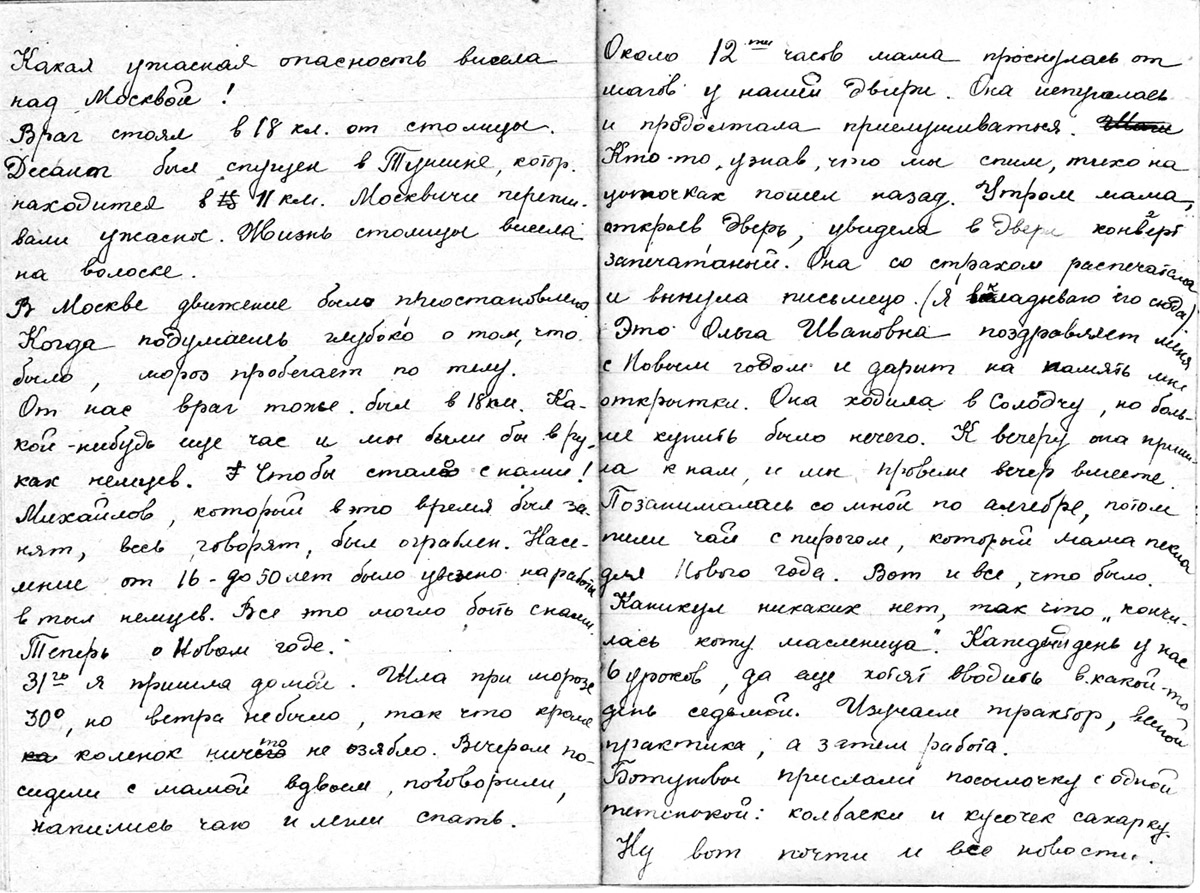 Какая ужасная опасность висела
над Москвой !
Враг стоял в 18 кл. от столицы.
Десант был спущен в Тушине, котор.
находится в 11 км. Москвичи пережи-
вали ужасное. Жизнь столицы висела
на волоске.
В Москве движение было приостановлено.
Когда подумаешь глубоко о том, что
было, мороз пробегает по телу.
От нас враг тоже был в 18 км. Ка-
кой-нибудь еще час и мы были бы в ру-
ках немцев. Чтобы стало с нами!
Михайлов, который в то время был за-
нят, весь, говорят, был ограблен. Насе-
ление от 16 - до 50 лет было увезено на работы
в тыл немцев. Все это могло быть с нами.
Теперь о Новом годе.
31го я пришла домой. Шла при морозе
30°, но ветра не было, так что кроме
коленок ничто не озябло. Вечером по-
сидели с мамой вдвоем, поговорили,
напились чаю и легли спать.
Около 12ти часов мама проснулась от
шагов у нашей двери. Она испугалась
и продолжала прислушиваться.
Кто-то, узнав, что мы спим, тихо на
цыпочках пошел назад. Утром мама,
открыв дверь, увидела в двери конверт
запечатаный. Она со страхом распечатала
и вынула письмецо. (Я вкладываю его сюда).
Это Ольга Ивановна поздравляет меня
с Новым годом и дарит на память мне
открытки. Она ходила в Солодчу, но боль-
ше купить было нечего. К вечеру она приш-
ла к нам, и мы провели вечер вместе.
Позанималась со мной по алгебре, потом
пили чай с пирогом, который мама пекла
для Нового года. Вот и все, что было.
Каникул никаких нет, так что „кончи-
лась коту масленица". Каждый день у нас
6 уроков, да еще хотят вводить в какой-то
день седьмой. Изучаем трактор, весной
практика, а затем работа.
прислали посылочку с одной
тетенькой: колбаски и кусочек сахарку.
Ну вот почти и все новости.